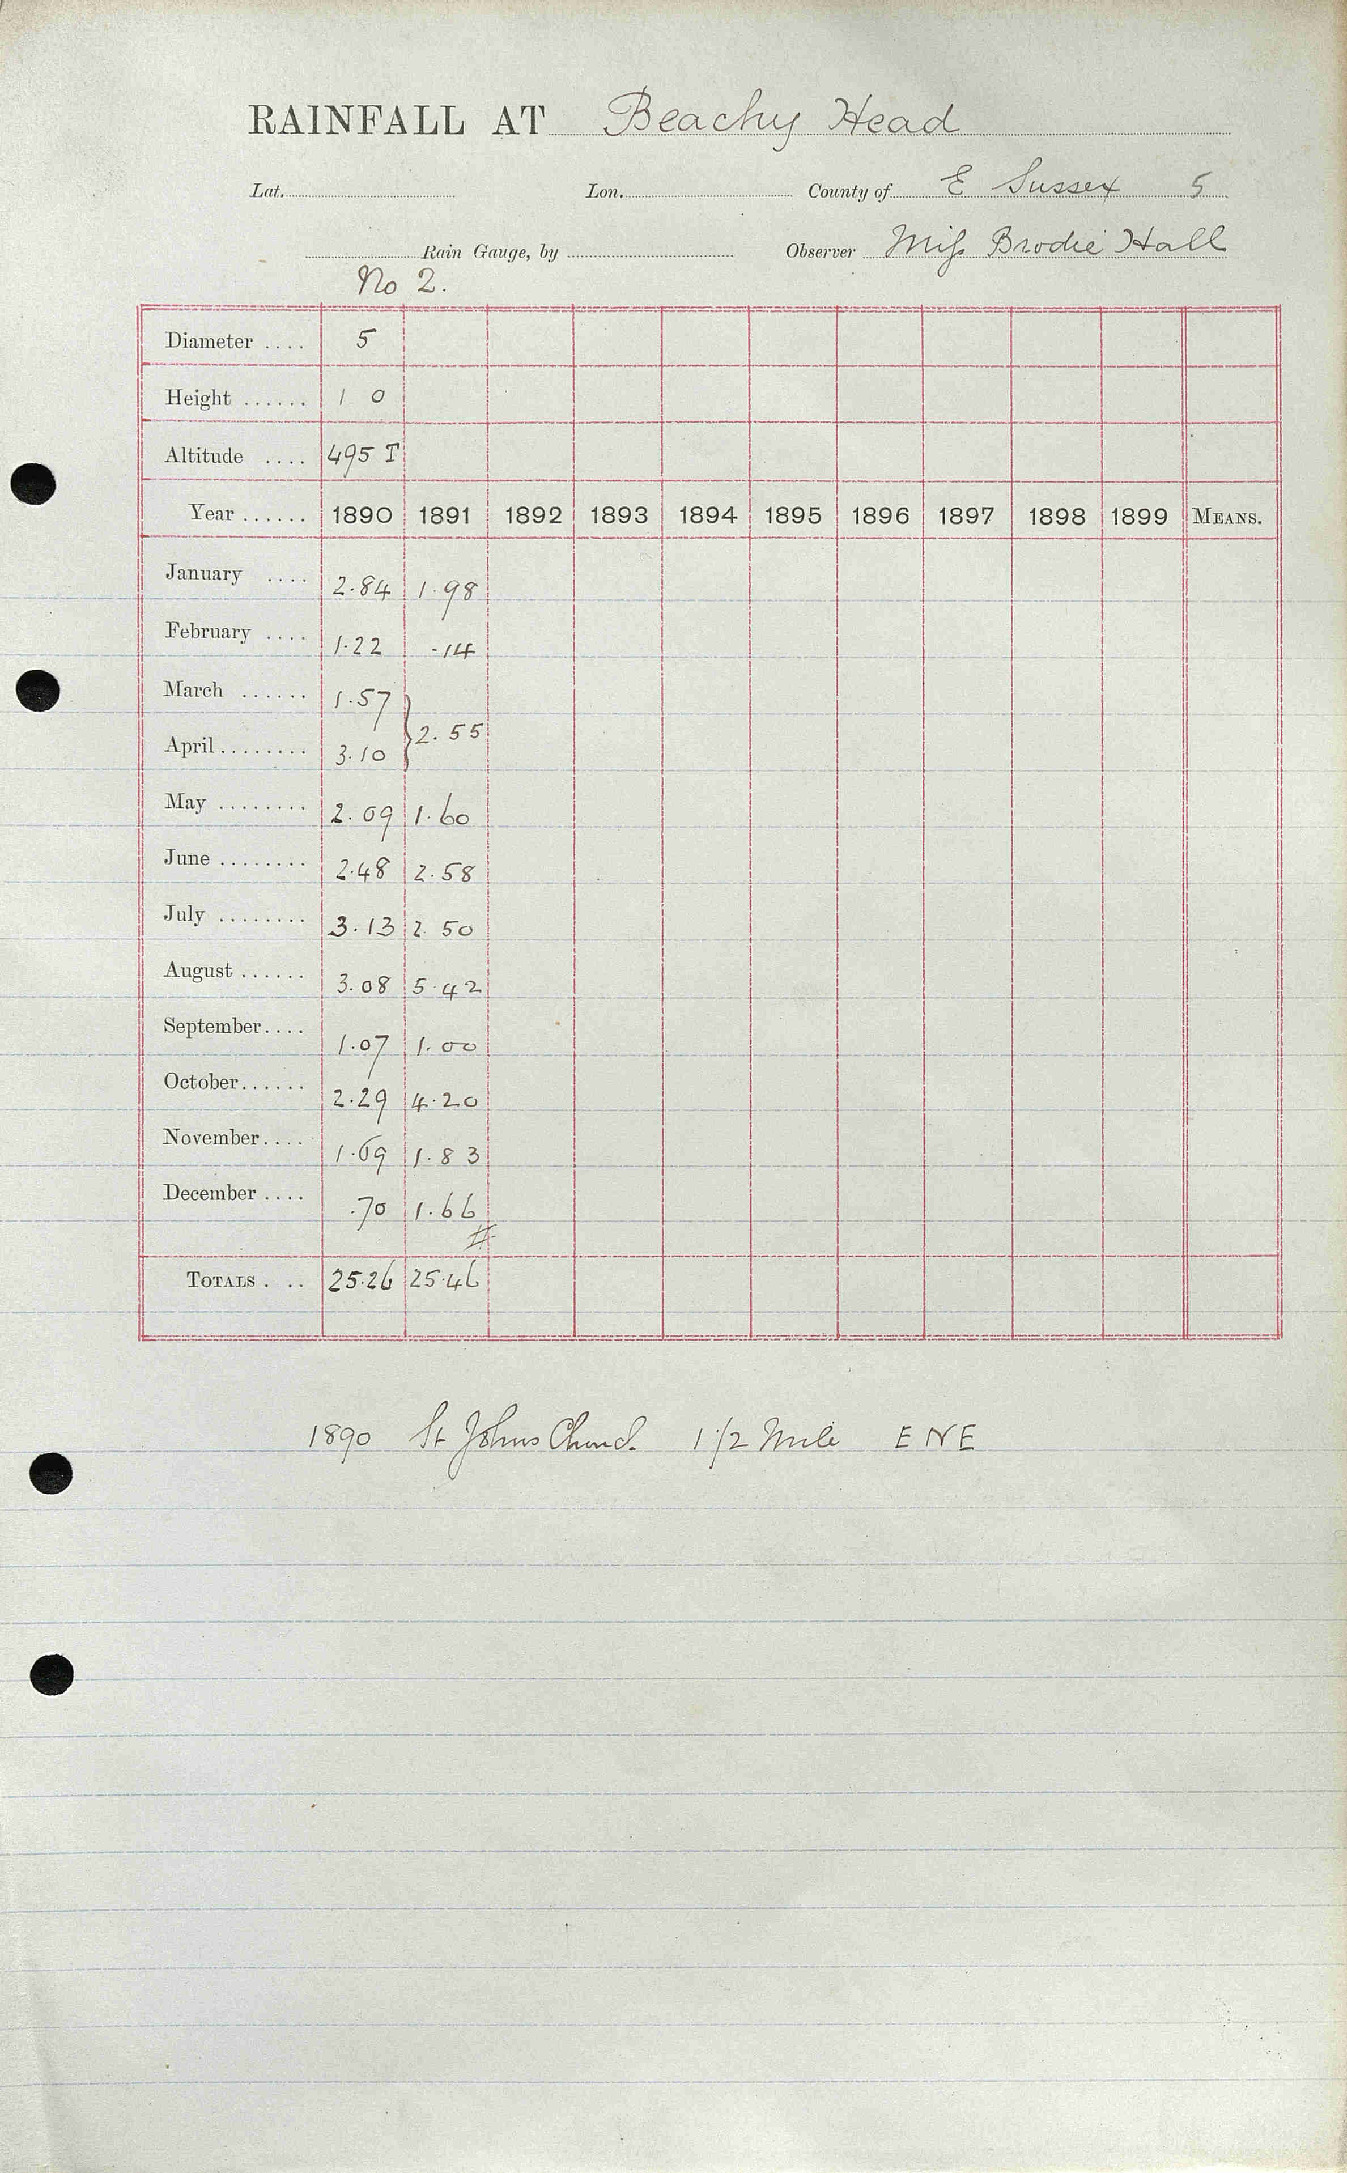 RAINFALL AT Beachy Head
Lat. Lon. County of E Sussex 5
Rain Gauge, by Observer Miss Brodie Hall
No 2.
Diameter .... 5
Height ...... 1 0
Altitude .... 495 T
Year ...... 1890 1891 1892 1893 1894 1895 1896 1897 1898 1899 MEANS.
January .... 2.84 1.98
February .... 1.22 .14
March ...... 1.57
} 2.55
April ........ 3.10
May ........ 2.09 1.60
June ........ 2.48 2.58
July ........ 3.13 2.50
August ...... 3.08 5.42
September.... 1.07 1.00
October...... 2.29 4.20
November.... 1.69 1.83
December .... .70 1.66
#
TOTALS . .. 25.26 25.46
1890 St Johns Church 1 1/2 Mile ENE